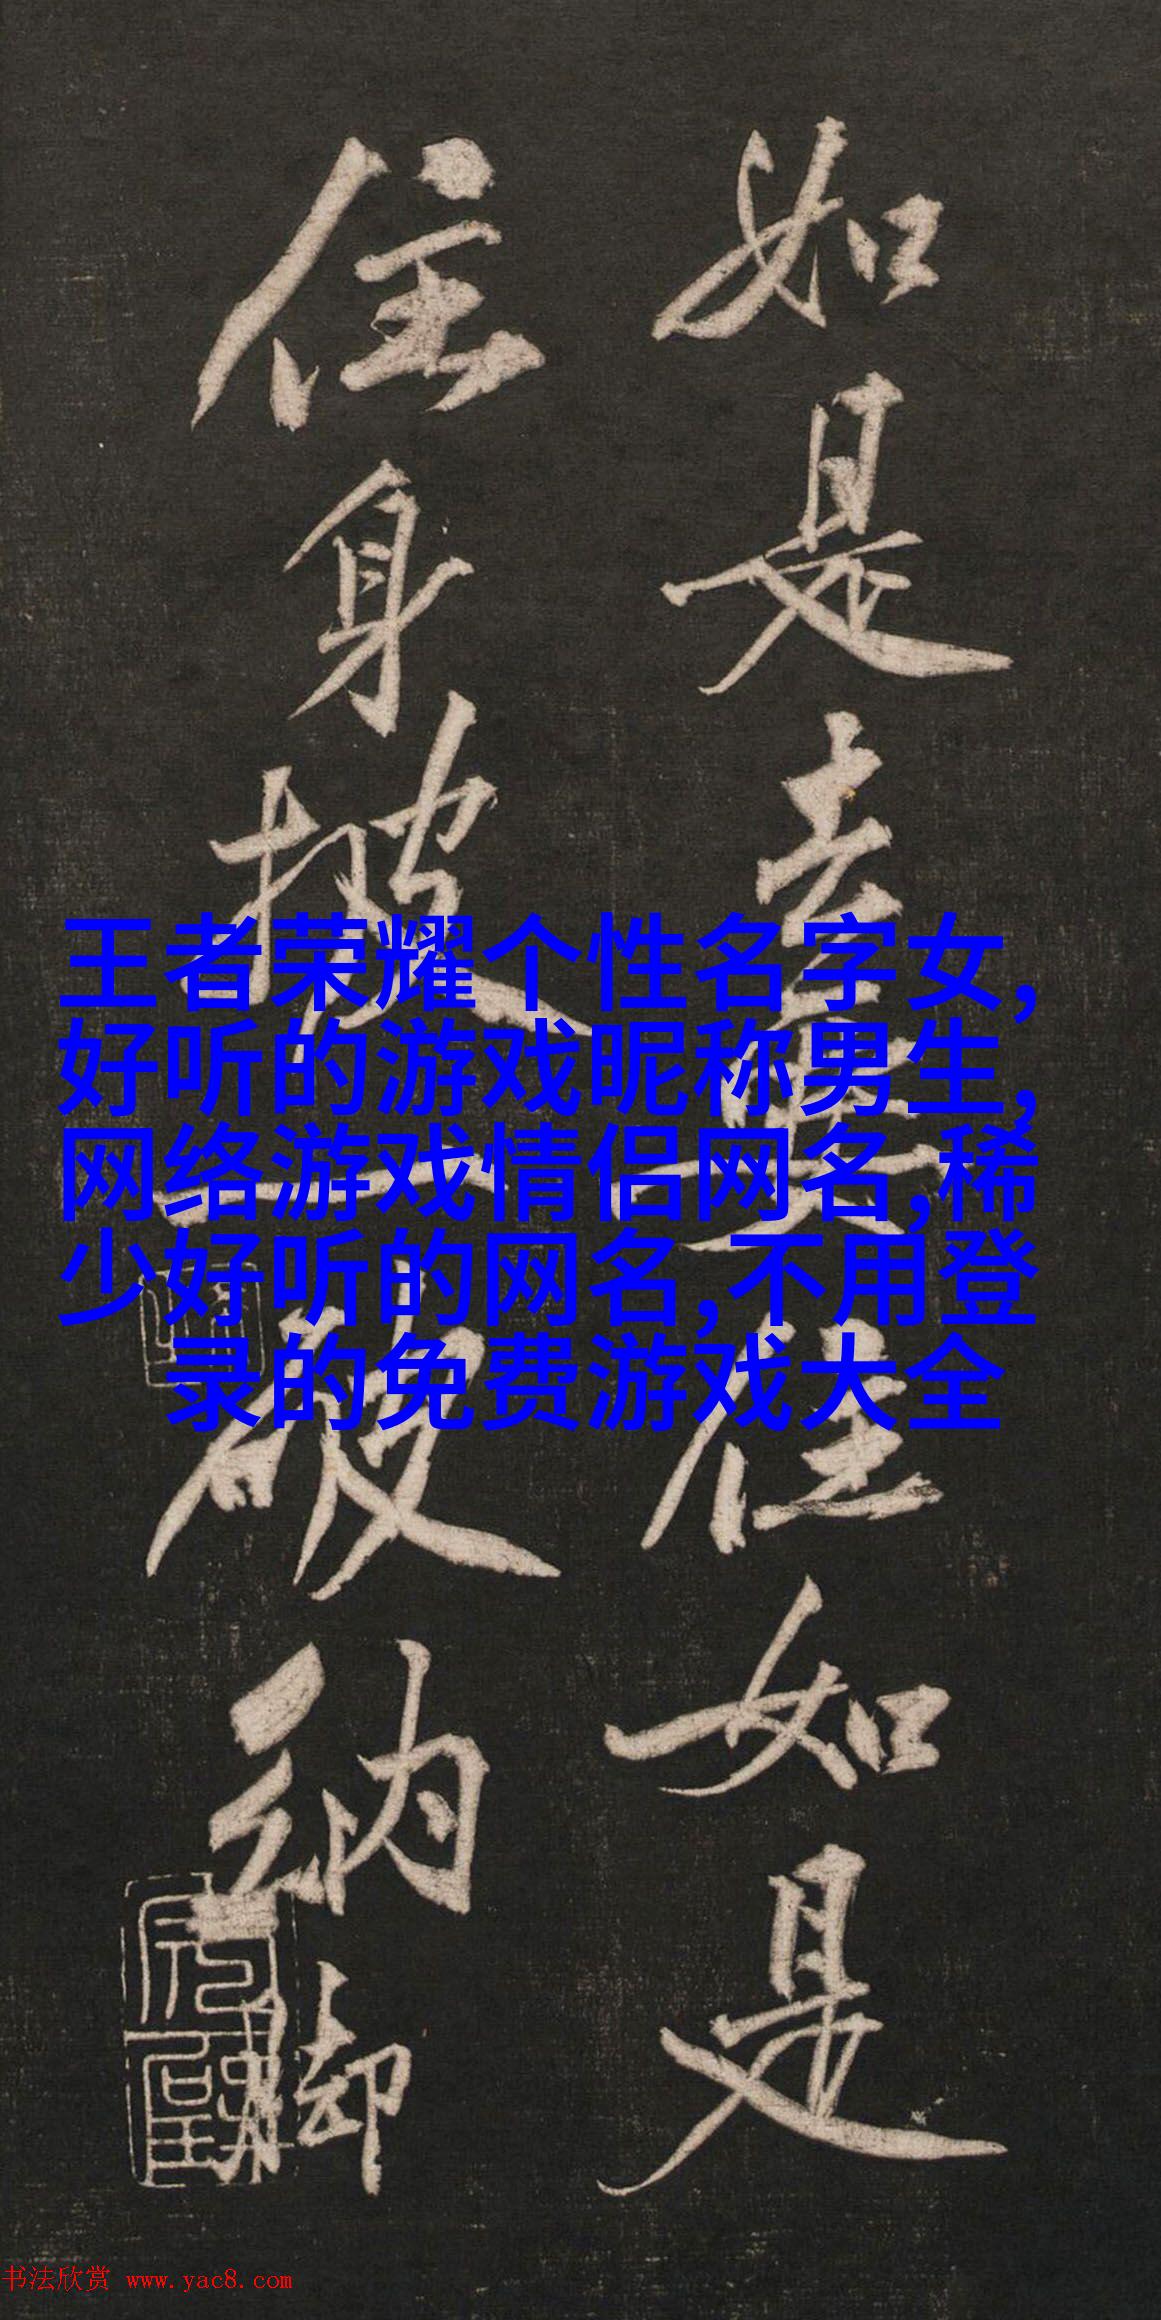 如是去来住如是
住身披一破纳脚
王者荣耀个性名字女,
好听的游戏昵称男生,
网络游戏情侣网名,稀
少好听的网名,不用登
录的免费游戏大全
书法欣赏 www.yac8.com